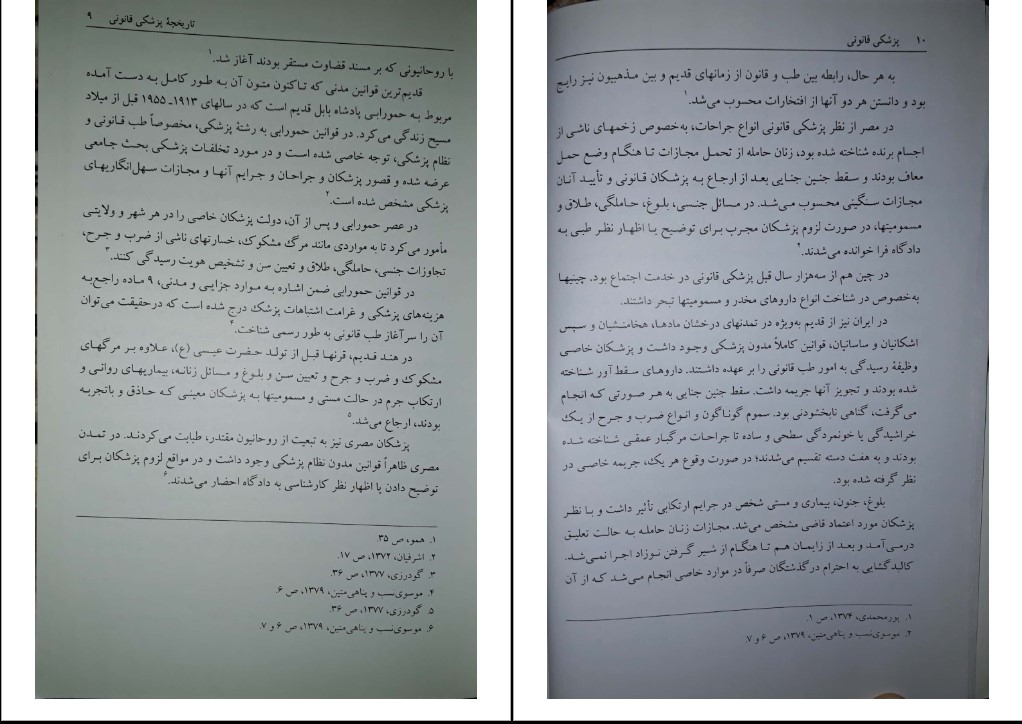 تاریخچهٔ پزشکی قانونی ۹
با روحانیونی که بر مسند قضاوت مستقر بودند آغاز شد.۱
قدیم‌ترین قوانین مدنی که تاکنون متون آن به طور کامل به دست آمده
مربوط به حمورابی پادشاه بابل قدیم است که در سالهای ۱۹۱۳ـ۱۹۵۵ قبل از میلاد
مسیح زندگی می‌کرد. در قوانین حمورابی به رشتهٔ پزشکی، مخصوصاً طب قانونی و
نظام پزشکی، توجه خاصی شده است و در مورد تخلفات پزشکی بحث جامعی
عرضه شده و قصور پزشکان و جراحان و جرایم آنها و مجازات سهل‌انگاریهای
پزشکی مشخص شده است.۲
در عصر حمورابی و پس از آن، دولت پزشکان خاصی را در هر شهر و ولایتی
مأمور می‌کرد تا به مواردی مانند مرگ مشکوک، خسارتهای ناشی از ضرب و جرح،
تجاوزات جنسی، حاملگی، طلاق و تعیین سن و تشخیص هویت رسیدگی کنند.۳
در قوانین حمورابی ضمن اشاره به موارد جزایی و مدنی، ۹ ماده راجع‌به
هزینه‌های پزشکی و غرامت اشتباهات پزشک درج شده است که درحقیقت می‌توان
آن را سرآغاز طب قانونی به طور رسمی شناخت.۴
در هند قدیم، قرنها قبل از تولد حضرت عیسی (ع)، علاوه بر مرگهای
مشکوک و ضرب و جرح و تعیین سن و بلوغ و مسائل زنانه، بیماریهای روانی و
ارتکاب جرم در حالت مستی و مسمومیتها به پزشکان معینی که حاذق و باتجربه
بودند، ارجاع می‌شد.۵
پزشکان مصری نیز به تبعیت از روحانیون مقتدر، طبابت می‌کردند. در تمدن
مصری ظاهراً قوانین مدون نظام پزشکی وجود داشت و در مواقع لزوم پزشکان برای
توضیح دادن یا اظهار نظر کارشناسی به دادگاه احضار می‌شدند.۶
۱. همو، ص ۳۵.
۲. اشرفیان، ۱۳۷۲، ص ۱۷.
۳. گودرزی، ۱۳۷۷، ص ۳۶.
۴. موسوی‌نسب و پناهی‌متین، ۱۳۷۹، ص ۶.
۵. گودرزی، ۱۳۷۷، ص ۳۶.
۶. موسوی‌نسب و پناهی‌متین، ۱۳۷۹، ص ۶ و ۷.
۱۰ پزشکی قانونی
به هر حال، رابطه بین طب و قانون از زمانهای قدیم و بین مذهبیون نیز رایج
بود و دانستن هر دو آنها از افتخارات محسوب می‌شد.۱
در مصر از نظر پزشکی قانونی انواع جراحات، به‌خصوص زخمهای ناشی از
اجسام برنده شناخته شده بود، زنان حامله از تحمل مجازات تا هنگام وضع حمل
معاف بودند و سقط جنین جنایی بعد از ارجاع به پزشکان قانونی و تأیید آنان
مجازات سنگینی محسوب می‌شد. در مسائل جنسی، بلوغ، حاملگی، طلاق و
مسمومیتها، در صورت لزوم پزشکان مجرب برای توضیح یا اظهار نظر طبی به
دادگاه فرا خوانده می‌شدند.۲
در چین هم از سه‌هزار سال قبل پزشکی قانونی در خدمت اجتماع بود. چینیها
به‌خصوص در شناخت انواع داروهای مخدر و مسمومیتها تبحر داشتند.
در ایران نیز از قدیم به‌ویژه در تمدنهای درخشان مادها، هخامنشیان و سپس
اشکانیان و ساسانیان، قوانین کاملاً مدون پزشکی وجود داشت و پزشکان خاصی
وظیفهٔ رسیدگی به امور طب قانونی را بر عهده داشتند. داروهای سقط آور شناخته
شده بودند و تجویز آنها جریمه داشت. سقط جنین جنایی به هر صورتی که انجام
می‌گرفت، گناهی نابخشودنی بود. سموم گوناگون و انواع ضرب و جرح از یک
خراشیدگی یا خونمردگی سطحی و ساده تا جراحات مرگبار عمقی شناخته شده
بودند و به هفت دسته تقسیم می‌شدند؛ در صورت وقوع هر یک، جریمه خاصی در
نظر گرفته شده بود.
بلوغ، جنون، بیماری و مستی شخص در جرایم ارتکابی تأثیر داشت و با نظر
پزشکان مورد اعتماد قاضی مشخص می‌شد. مجازات زنان حامله به حالت تعلیق
درمی‌آمد و بعد از زایمان هم تا هنگام از شیر گرفتن نوزاد اجرا نمی‌شد.
کالبدگشایی به احترام درگذشتگان صرفاً در موارد خاصی انجام می‌شد که از آن
۱. پورمحمدی، ۱۳۷۴، ص ۱.
۲. موسوی‌نسب و پناهی‌متین، ۱۳۷۹، ص ۶ و ۷.